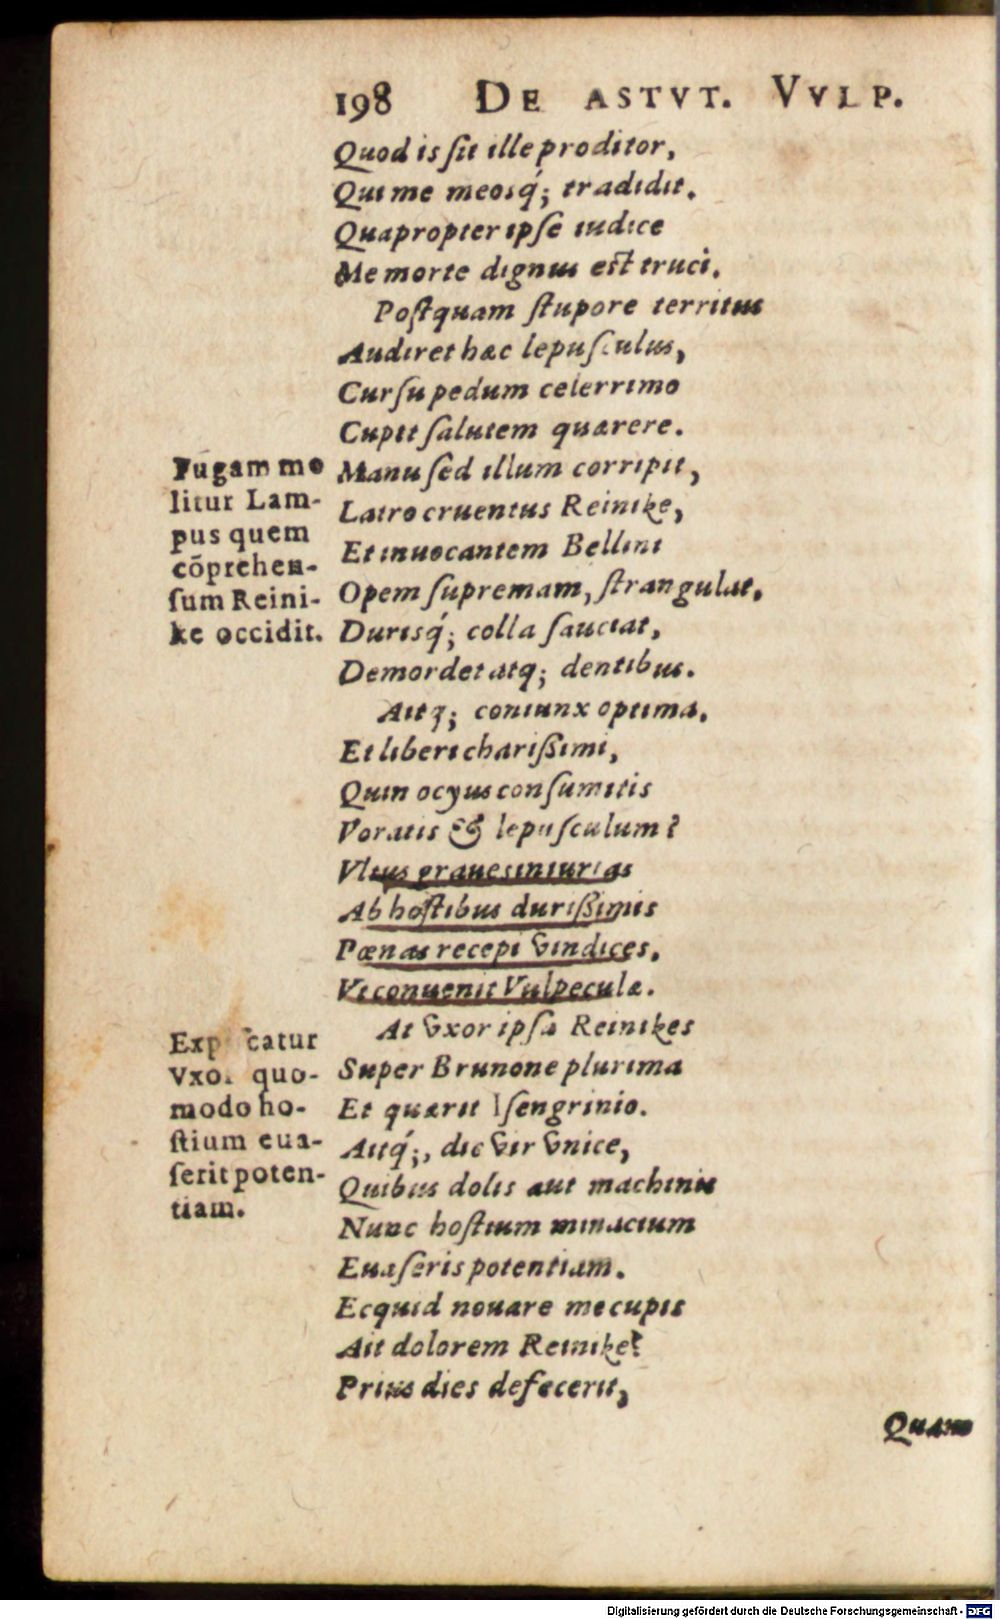 198 DE ASTVT. VVLP.
Quod is ſit ille proditor,
Qui me meosq́; tradidit.
Quapropter ipſe iudice
Me morte dignus eſt truci.
Poſtquam ſtupore territus
Audiret hæc lepuſculus,
Curſu pedum celerrimo
Cupit ſalutem quærere.
Manu ſed illum corripit,
Latro cruentus Reinike,
Et inuocantem Bellini
Opem ſupremam, ſtrangulat,
Durisq́; colla ſauciat,
Demordet atq; dentibus.
Aitq; coniunx optima,
Et liberi charißimi,
Quin ocyus conſumitis
Voratis & lepuſculum?
Vltus graues iniurias
Ab hoſtibus durißimis
Pœnas recepi vindices,
Vt conuenit Vulpeculæ.
At vxor ipſa Reinikes
Super Brunone plurima
Et quærit Iſengrinio.
Aitq́;, dic vir vnice,
Quibus dolis aut machinis
Nunc hoſtium minacium
Euaſeris potentiam.
Ecquid nouare me cupis
Ait dolorem Reinike?
Prius dies defecerit,
Quam
Fugam mo
litur Lam-
pus quem
cõprehen-
ſum Reini-
ke occidit.
Exp catur
Vxor quo-
modo ho-
ſtium eua-
ſerit poten-
tiam.
Digitalisierung gefördert durch die Deutsche Forschungsgemeinschaft - DFG